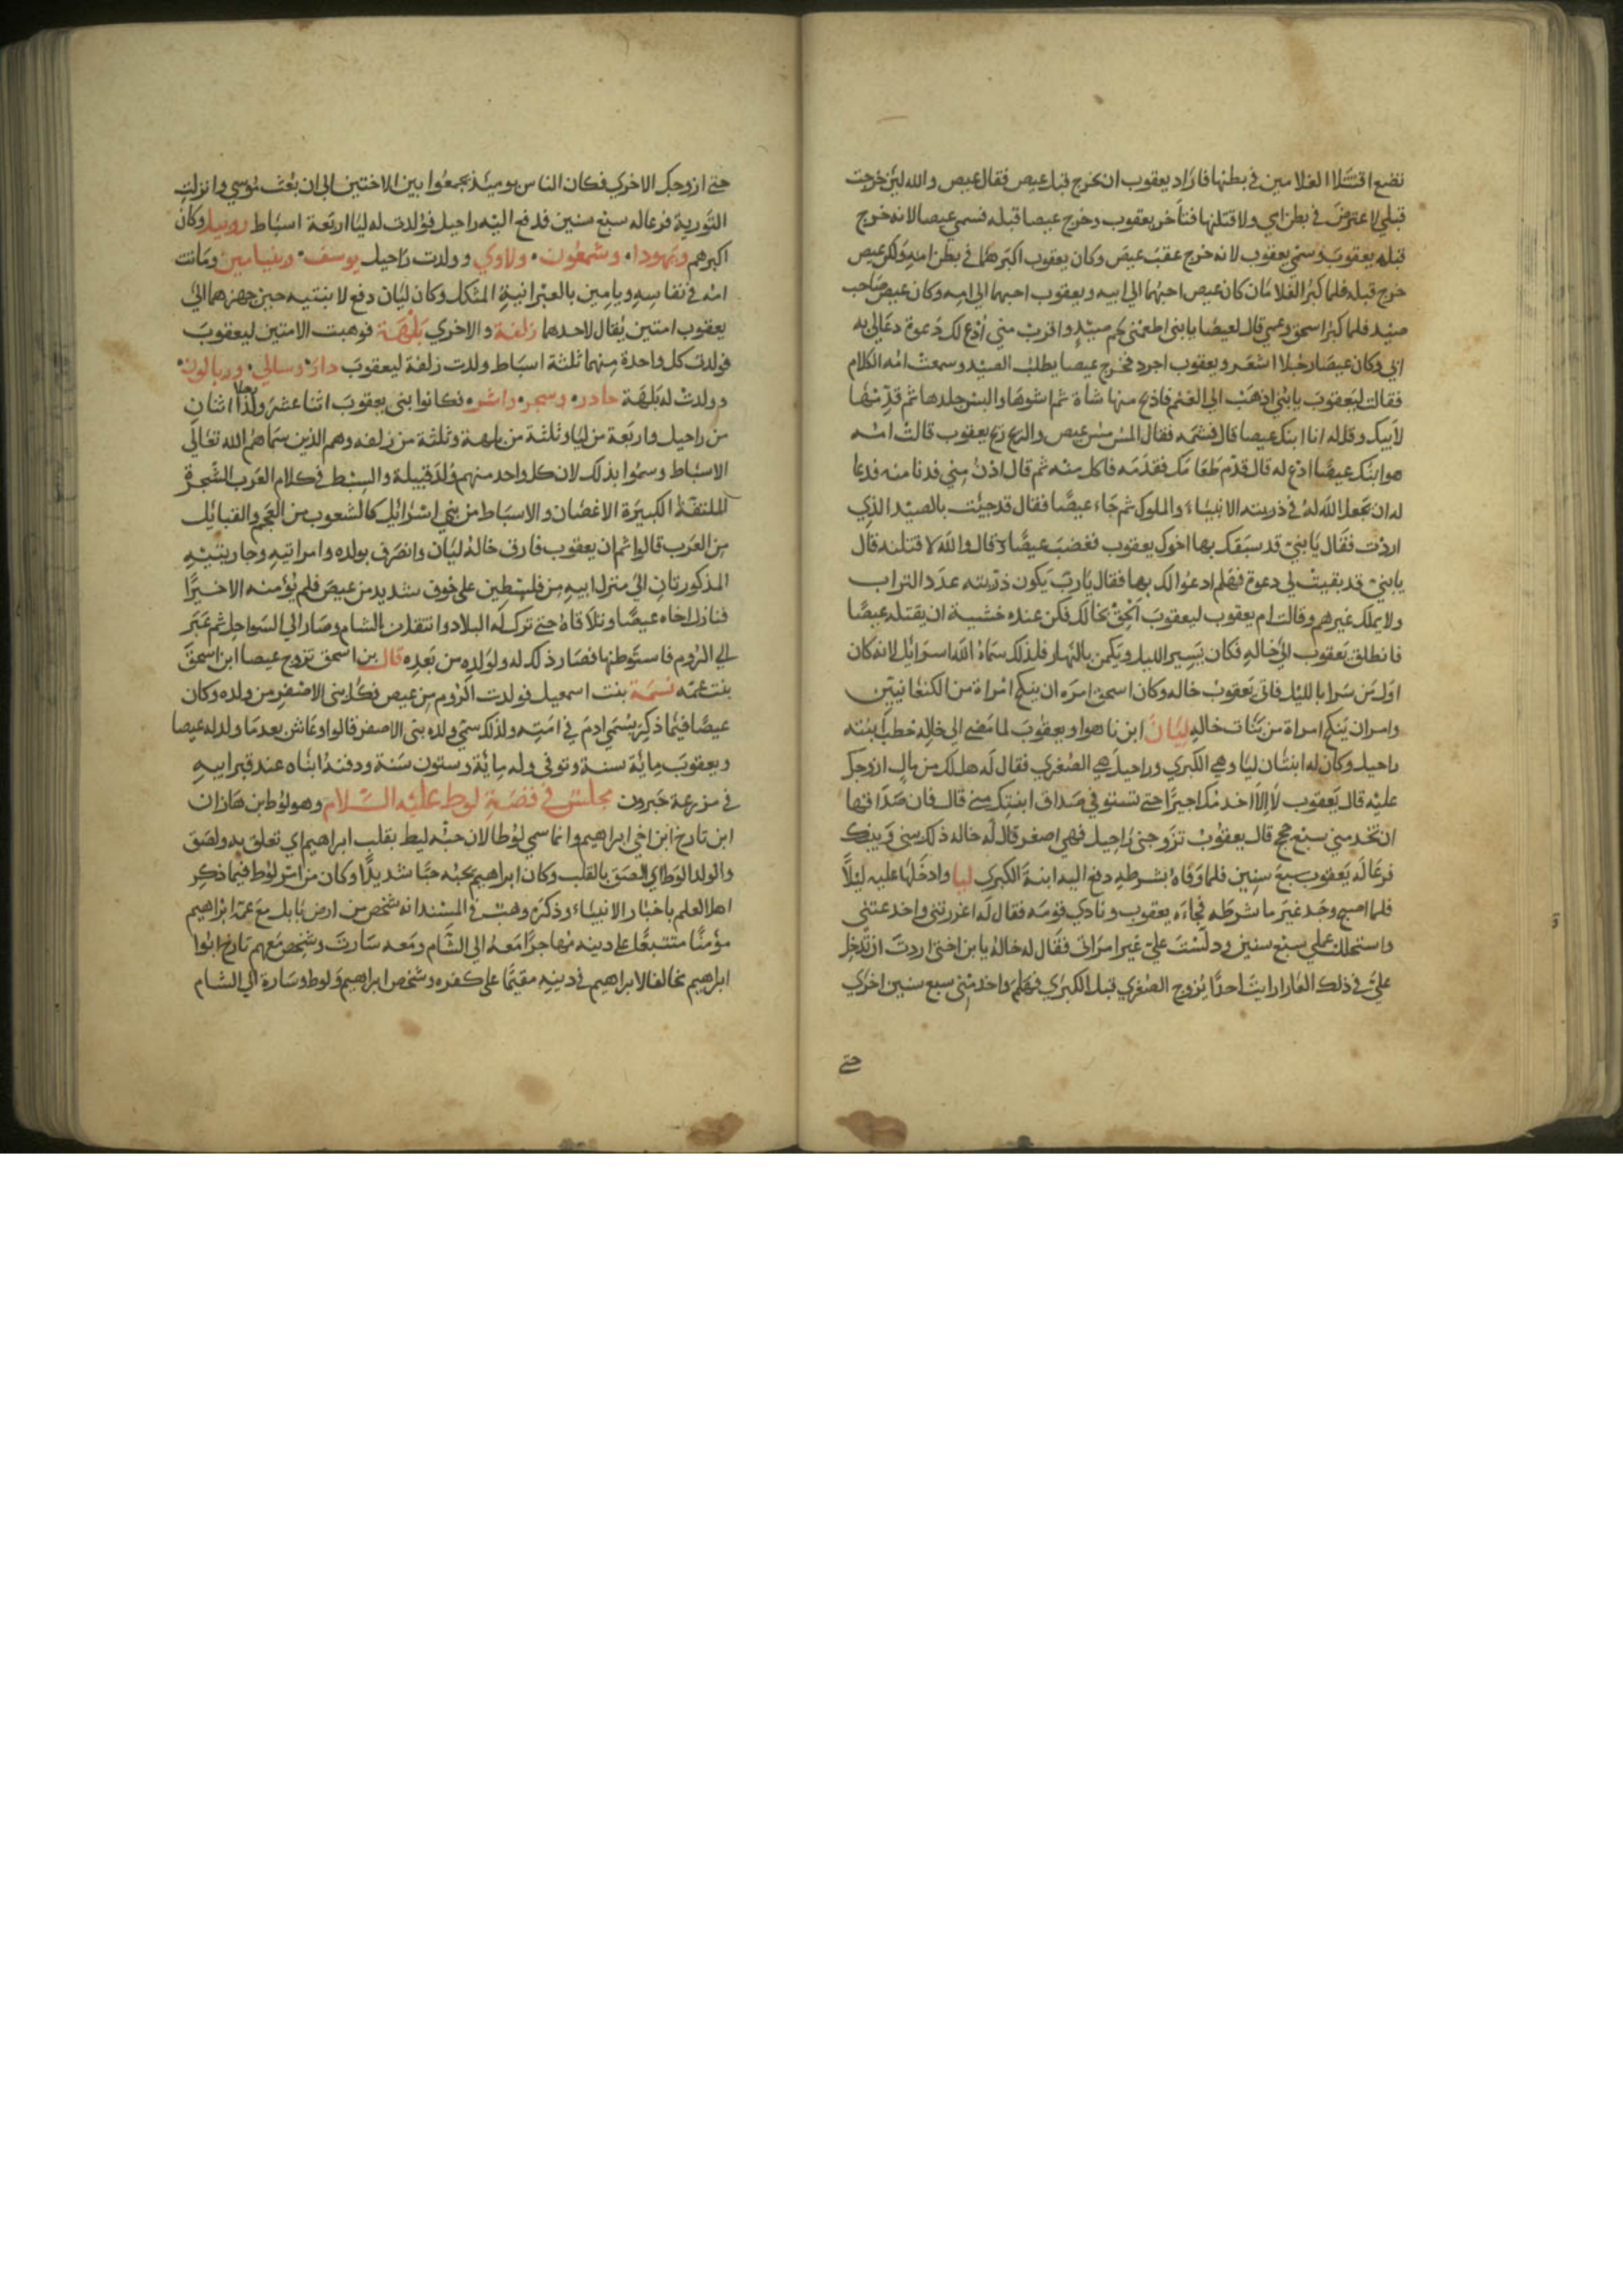 تضع اقتتلا الغلامين في بطنها فاراد يعقوب ان يخرج قبل عيص فقال عيص والله لئن خرجت
قبلي لاعترضن في بطن امي ولاقتلنها فتأخر يعقوب وخرج عيصا قبله فسمي عيصا لانه خرج
قبله يعقوب وسمي يعقوب لانه خرج عقب عيص وكان يعقوب اكبرهما في بطن امه ولكن عيص
خرج قبله فلما كبر الغلامان كان عيص احبهما الي ابيه ويعقوب احبهما الي امه وكان عيص صاحب
صيد فلما كبر اسحق وعمي قال لعيصا يا بني اطعمني لحم صيد واقرب مني أدع لك دعوة دعا لي به
ابي وكان عيصا رجلا اشعر ويعقوب اجرد فخرج عيصا يطلب الصيد وسمعت امه الكلام
فقالت ليعقوب يا بني اذهب الي الغنم فاذبح منها شاة ثم اشوها والبس جلدها ثم قدمها
لأبيك وقل له انا ابنك عيصا قال فشمه فقال المس مس عيص والريح ريح يعقوب قالت امه
هو ابنك عيصا ادع له قال قدم طعامك فقدمه فاكل منه ثم قال ادن مني فدنا منه فدعا
له ان يجعل الله له في ذريته الانبياء والملوك ثم جاء عيصا فقال قد جيئت بالصيد الذي
اردت فقال يا بني قد سبقك بها اخوك يعقوب فغضب عيصا وقال والله لاقتلنه قال
يا بني قد بقيت لي دعوة فهلم ادعوا لك بها فقال يا رب يكون ذريته عدد التراب
ولا يملك غيرهم وقالت ام يعقوب ليعقوب الحق بخالك فكن عنده خشية ان يقتله عيصا
فانطلق يعقوب الي خاله فكان يسير الليل ويكمن بالنهار فلذلك سماه الله اسرائل لانه كان
اول من سرا بالليل فاتي يعقوب خاله وكان اسحق امره ان ينكح امراة من الكنعانيين
وامر ان ينكح امراة من بنات خاله ليان ابن ناهوا ويعقوب لما مضي الي خاله خطب ابنته
راحيل وكان له ابنتان ليا وهي الكبري وراحيل هي الصغري فقال له هل لك من مال ازوجك
عليه قال يعقوب لا الا اخدمك اجيرا حتي تستوفي صداق ابنتك مني قال فان صداقها
ان تخدمني سبع حجج قال يعقوب تزوجني راحيل فهي اصغر قال له خاله ذلك بيني وبينك
فرعا له يعقوب سبع سنين فلما وفاه بشرطه دفع اليه ابنة الكبري ليا وادخلها عليه ليلا
فلما اصبح وجد غير ما شرطه فجاءه يعقوب ونادي قومه فقال له اغررتني واخدعتني
واستحللت عملي سبع سنين ودلست علي غير امراتي فقال له خاله يا بن اختي اردت ان تدخل
علي في ذلك العار ارايت احدا يزوج الصغري قبل الكبري فهلم واخدمني سبع سنين اخري
حتي
حتي ازوجك الاخري فكان الناس يوميئذ يجمعوا بين الاختين الي ان بعث موسي وانزلت
التورية فرعا له سبع سنين فدفع اليه راحيل فولدت له ليا اربعة اسباط روبيل وكان
اكبرهم ويهودا وشمعون ولاوي وولدت راحيل يوسف وبنيامين وماتت
امه في نفاسه ويامين بالعبرانية المثكل وكان ليان دفع لابنتيه حين جهزهما الي
يعقوب امتين يقال لاحدهما زلفة والاخري بلهة فوهبت الامتين ليعقوب
فولدت كل واحدة منهما ثلثة اسباط ولدت زلفة ليعقوب دار وسالي وربالون
وولدت له بلهة حادر وسجر واشر فكانوا بني يعقوب اثنا عشر ولدا اثنان
من راحيل واربعة من ليا وثلثة من بلهة وثلثة من زلفه وهم الذين سماهم الله تعالي
الاسباط وسموا بذلك لان كل واحد منهم ولد قبيلة والسبط في كلام العرب الشجرة
الملتفة الكبيرة الاغصان والاسباط من بني اسرائيل كالشعوب من العجم والقبائل
من العرب قالوا ثم ان يعقوب فارق خاله ليان وانصرف بولده وامراتيه وجاريتيه
المذكورتان الي منزل ابيه من فلسطين علي خوف شديد من عيص فلم يؤمنه الا خيرا
فنازل اخاه عيصا وتلاقاه حتي ترك له البلاد وانتقل من الشام وصار الي السواحل ثم عبر
الي الروم فاستوطنها فصار ذلك له ولولده من بعده قال بن اسحق تزوج عيصا ابن اسحق
بنت عمه نسمة بنت اسمعيل فولدت الروم من عيص فكل بني الاصفر من ولده وكان
عيصا فيما ذكر يسمي ادم في امته ولذلك سمي ولده بني الاصفر قالوا وعاش بعد ما ولد له عيصا
ويعقوب ماية سنة وتوفي وله ماية وستون سنة ودفنه ابناه عند قبر ابيه
في مزرعة حبرون مجلس في قصة لوط عليه السلام وهو لوط ابن هازان
ابن تارخ ابن اخي ابراهيم وانما سمي لوطا لان حبه ليط بقلب ابراهيم اي تعلق به ولصق
والولد الوط اي الصق بالقلب وكان ابراهيم يحبه حبا شديدا وكان من امر لوط فيما ذكر
اهل العلم باخبار الانبياء وذكره وهب في المسند انه شخص من ارض بابل مع عمه ابراهيم
مؤمنا متبعا علي دينه مهاجرا معه الي الشام ومعه سارت وشخص معهم تارخ ابوا
ابراهيم مخالفا لابراهيم في دينه مقيما علي كفره وشخص ابراهيم ولوط وسارة الي الشام